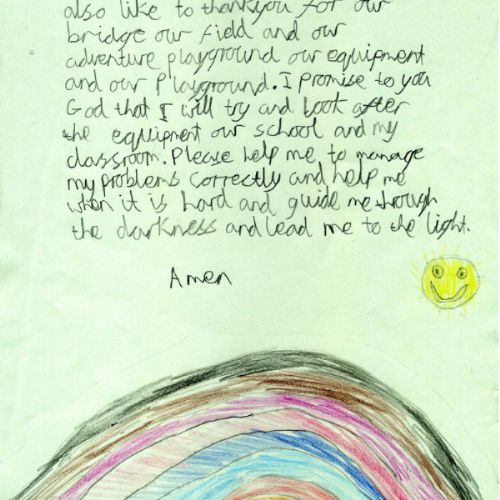 also like to thankyou for our
bridge our field and our
adventure playground our equipment
and our Playground. I promise to you
God that I will try and look after
the equipment our school and my
classroom. Please help me to manage
my problems correctly and help me
when it is hard and guide me through
the darkness and lead me to the light.
Amen